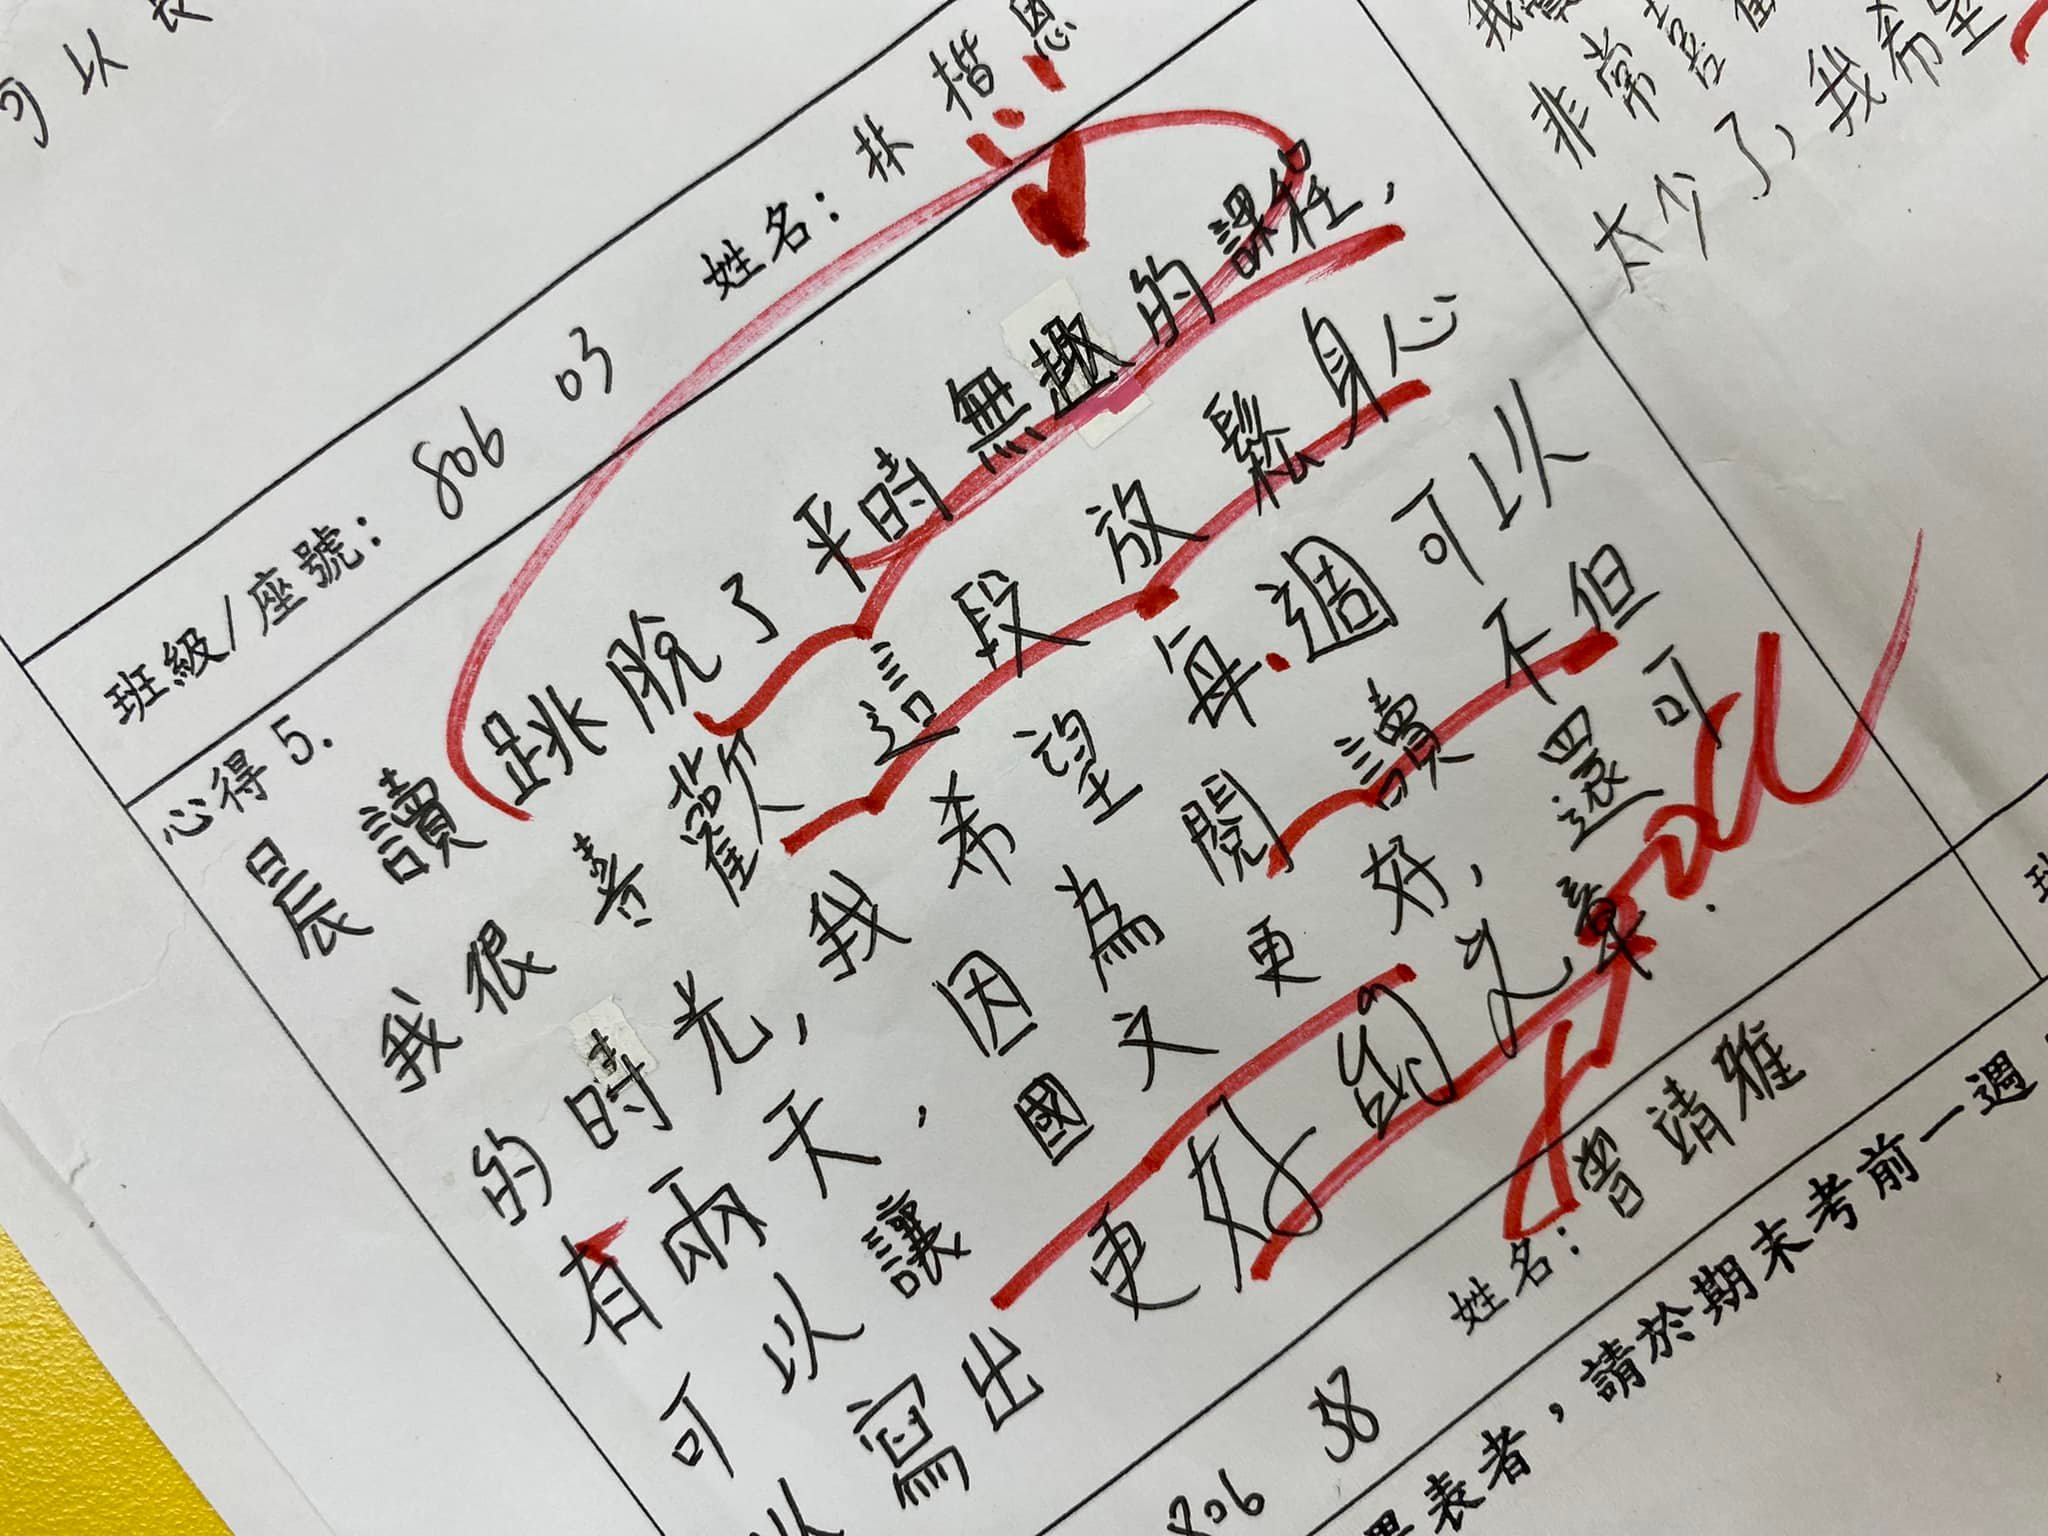 可以
班級/座號: 806 03 姓名: 林楷恩
心得5.
晨讀跳脫了平時無趣的課程,
我很喜歡這段放鬆身心
的時光,我希望每週可以
有兩天,因為閱讀不但
可以讓國文更好,還可
以寫出更好的文章.
806 38 姓名: 曾靖雅
表者,請於期末考前一週
非常喜歡
太少了,我希望